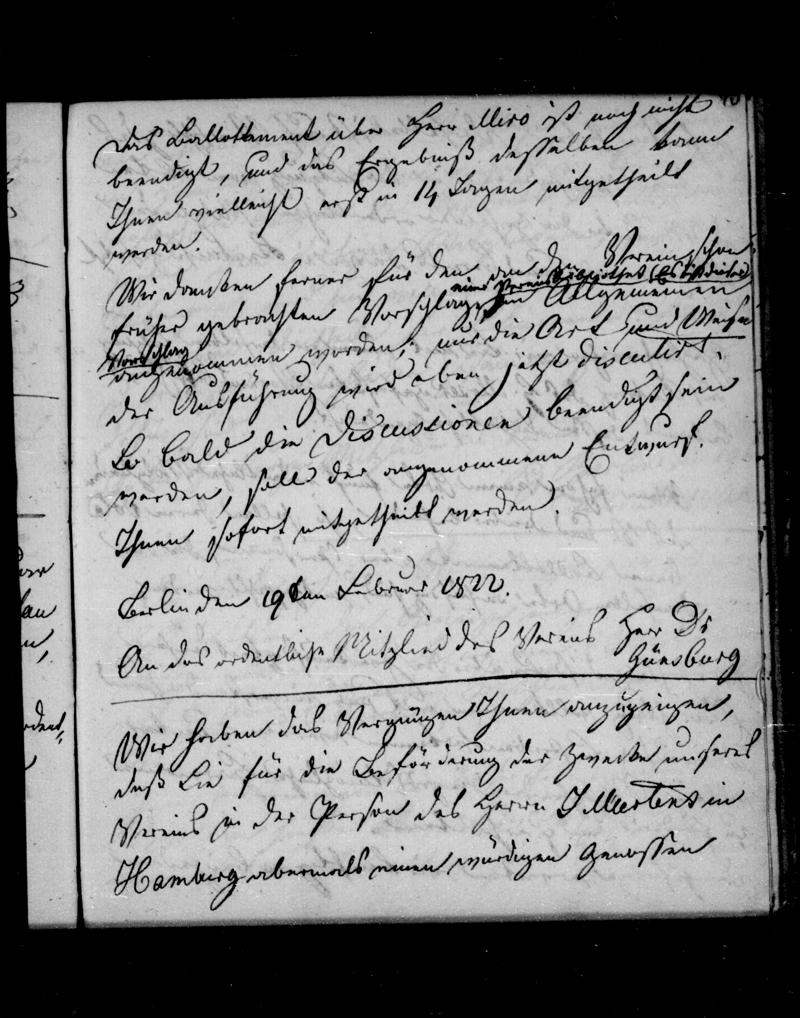 Das Ballottement über Herr Miro ist noch nicht
beendigt, und das Ergebniß desselben kann
Ihnen vielleicht erst in 14 Tagen mitgetheilt
werden.
Wir danken ferner für den an den Verein schon
einer Vereinsbibliothek (Es ist dieser
früher gebrachten Vorschlag, im Allgemeinen
Vorschlag
angenommen worden; nur die Art und Weise
der Ausführung wird eben jetzt discutirt,
So bald die Discussionen beendigt sein
werden, soll der angenommene Entwurf
Ihnen sofort mitgetheilt werden.
Berlin den 19ten Februar 1822.
An das ordentliche Mitglied des Vereins Herr Dr
Günsburg
Wir haben das Vergnügen Ihnen anzuzeigen,
daß Sie für die Beförderung der Zwecke unseres
Vereins in der Person des Herrn J Mertens in
Hamburg abermals einen würdigen Genossen